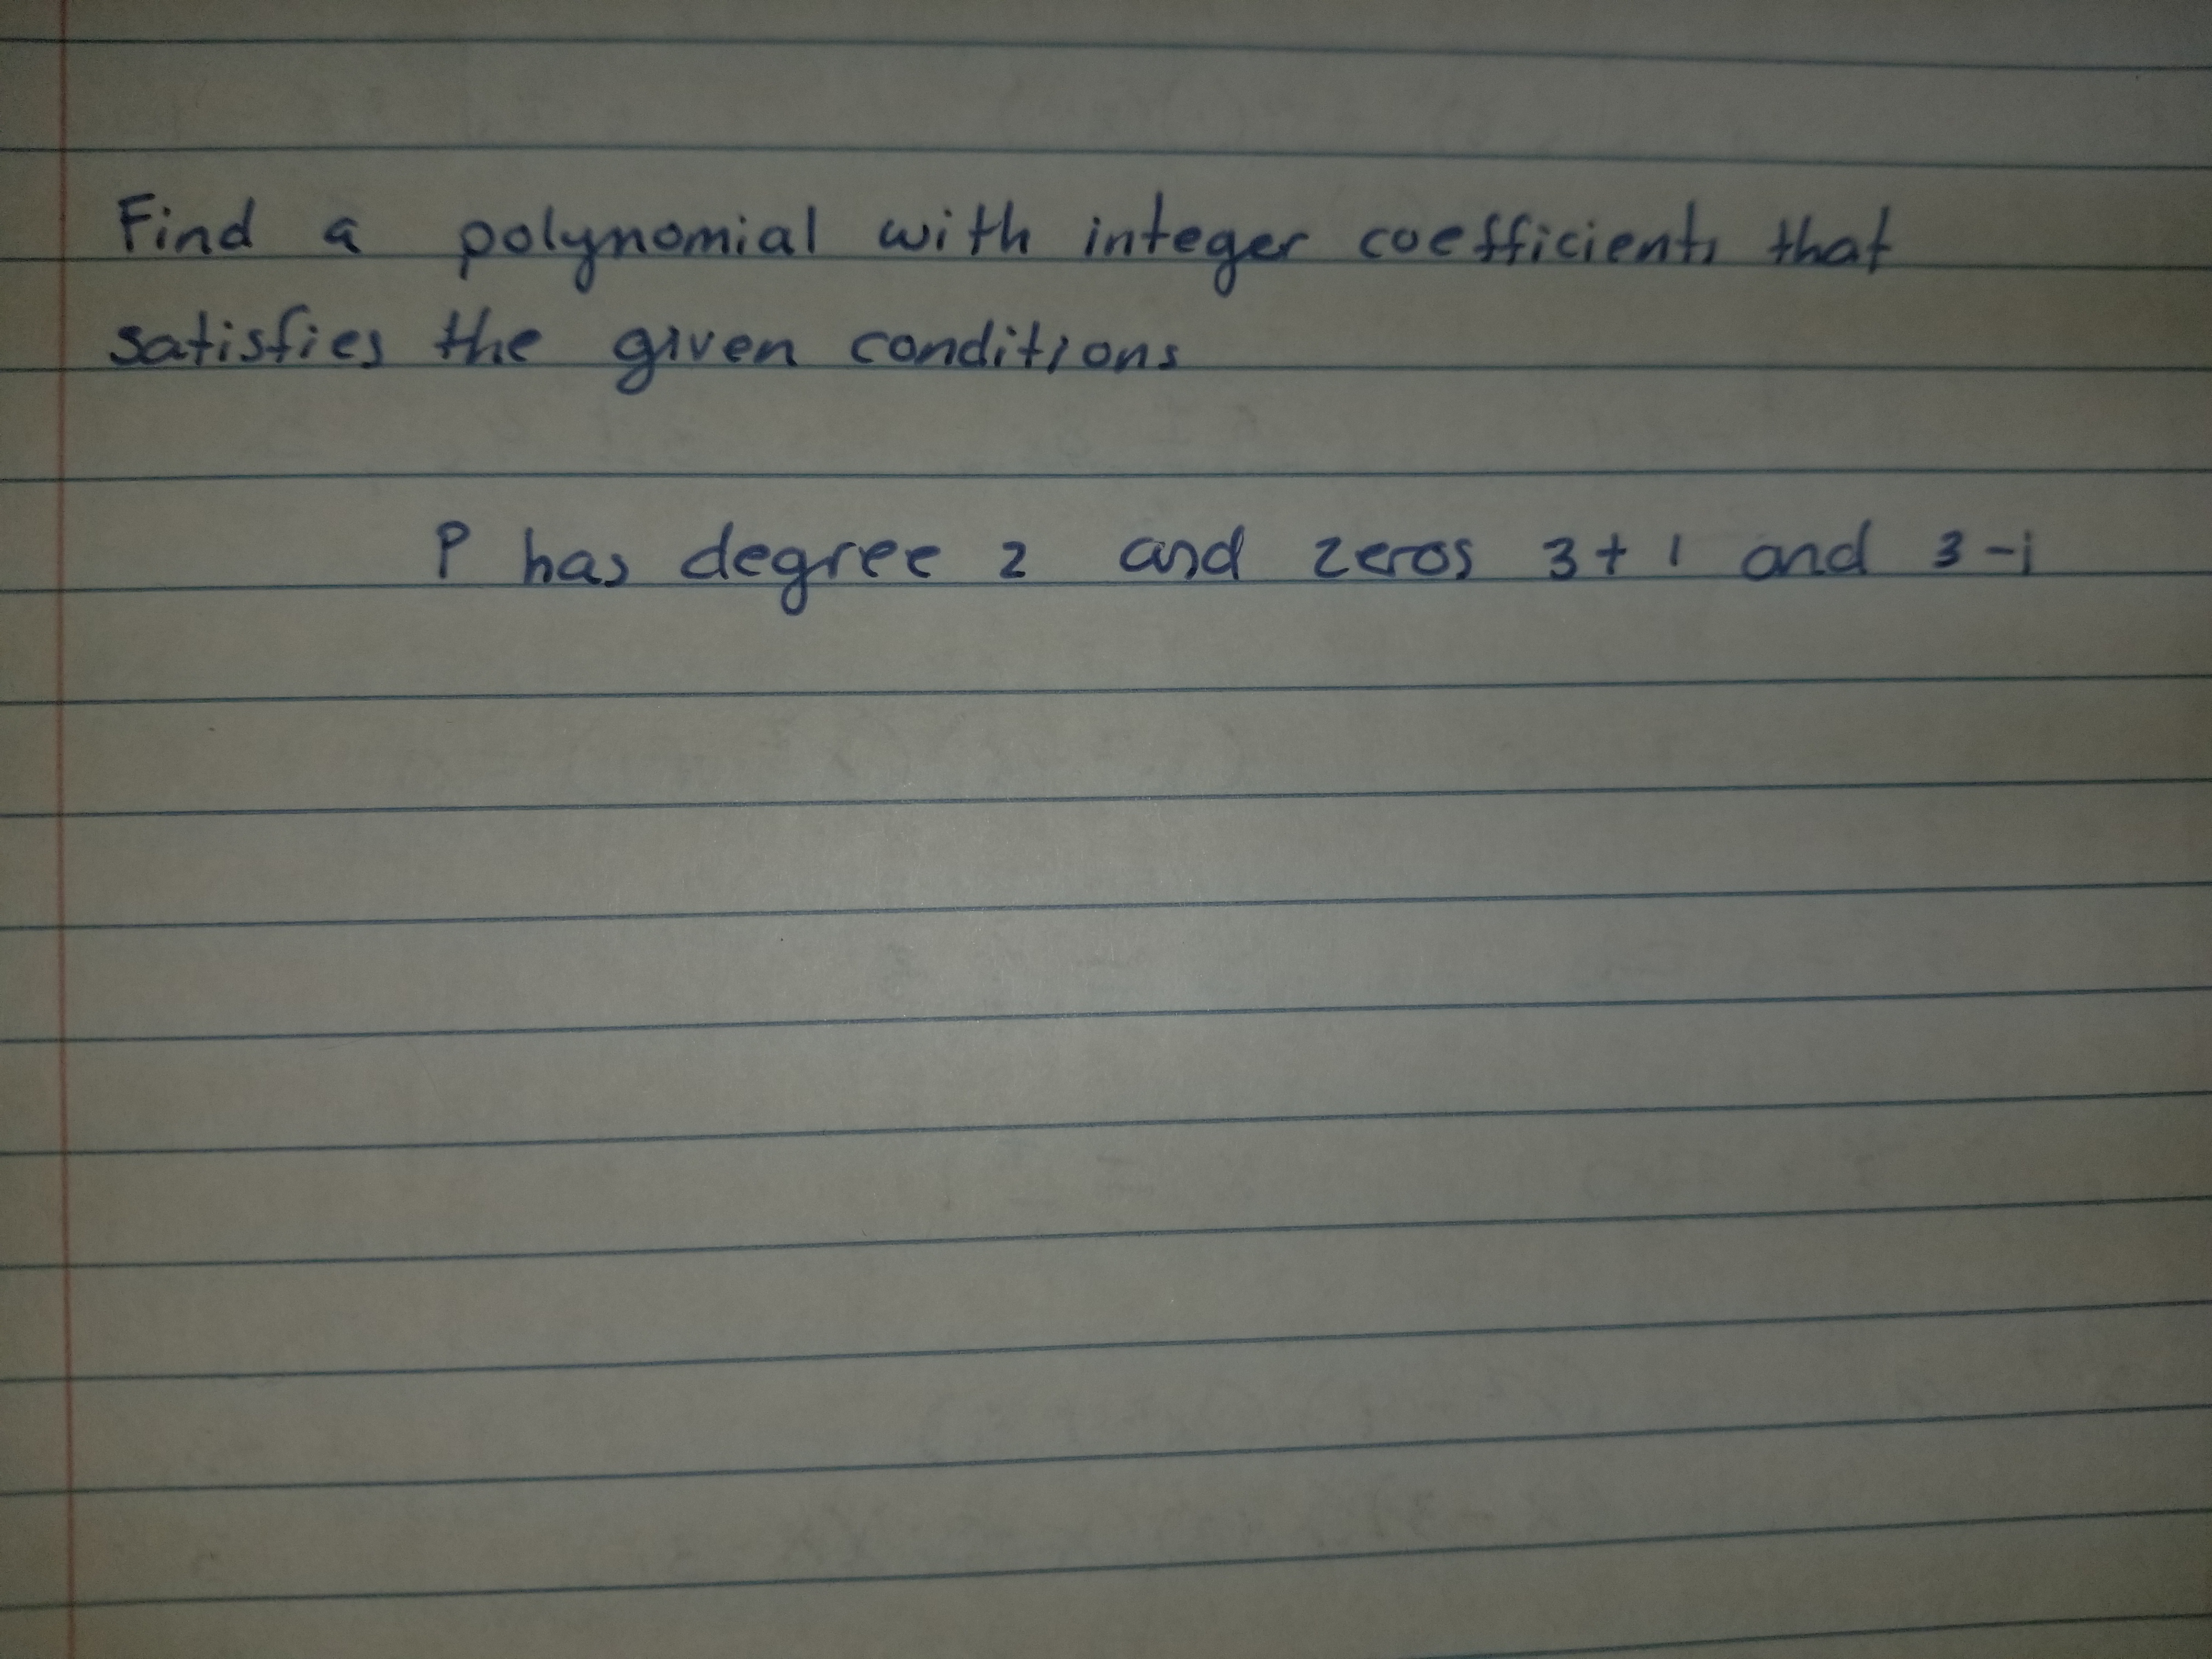 Find a polynomial with integer coefficients that
satisfies the given conditions
P has degree 2 and zeros 3+i and 3-i